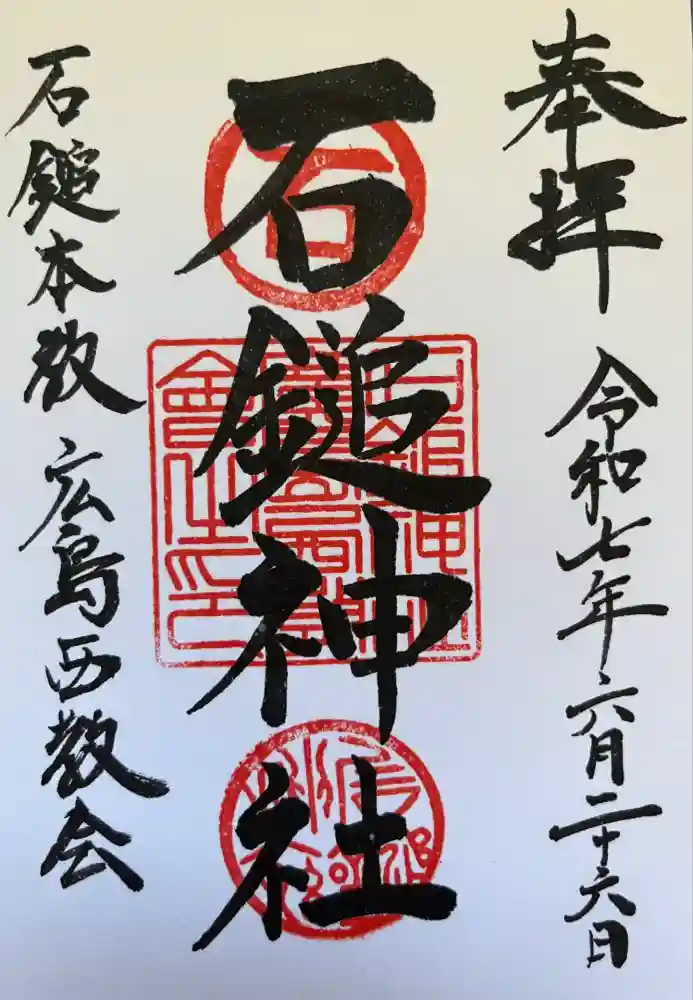 奉拝
令和七年六月二十六日
石鎚神社
石鎚本教
広島西教会